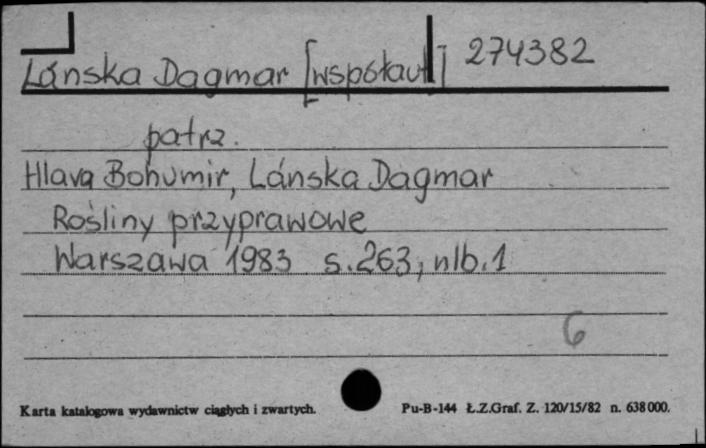 Lánska Dagmar [współaut] 274382
patrz.
Hlava Bohumir, Lánska Dagmar
Rośliny przyprawowe
Warszawa 1983 s.263, nlb.1
6
Karta katalogowa wydawnictw ciągłych i zwartych. Pu-B-144 Ł.Z.Graf. Z. 120/15/82 n. 638000.